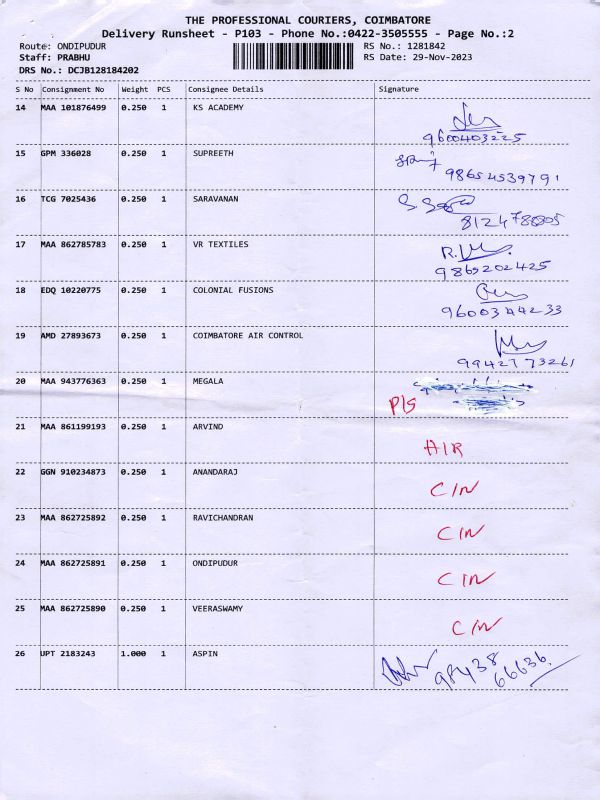 THE PROFESSIONAL COURIERS, COIMBATORE
Delivery Runsheet - P103 - Phone No.:0422-3505555 - Page No.:2
Route: ONDIPUDUR RS No.: 1281842
Staff: PRABHU RS Date: 29-Nov-2023
DRS No.: DCJB128184202
S No Consignment No Weight PCS Consignee Details Signature
14 MAA 101876499 0.250 1 KS ACADEMY
9600403225
15 GPM 336028 0.250 1 SUPREETH
9865453979 1
16 TCG 7025436 0.250 1 SARAVANAN
17 MAA 862785783 0.250 1 VR TEXTILES
9865202425
18 EDQ 10220775 0.250 1 COLONIAL FUSIONS
9600344233
19 AMD 27893673 0.250 1 COIMBATORE AIR CONTROL
9942773261
20 MAA 943776363 0.250 1 MEGALA
P/S
21 MAA 861199193 0.250 1 ARVIND
AIR
22 GGN 910234873 0.250 1 ANANDARAJ
C/N
23 MAA 862725892 0.250 1 RAVICHANDRAN
C/N
24 MAA 862725891 0.250 1 ONDIPUDUR
C/N
25 MAA 862725890 0.250 1 VEERASWAMY
C/N
26 UPT 2183243 1.000 1 ASPIN
98438
66636